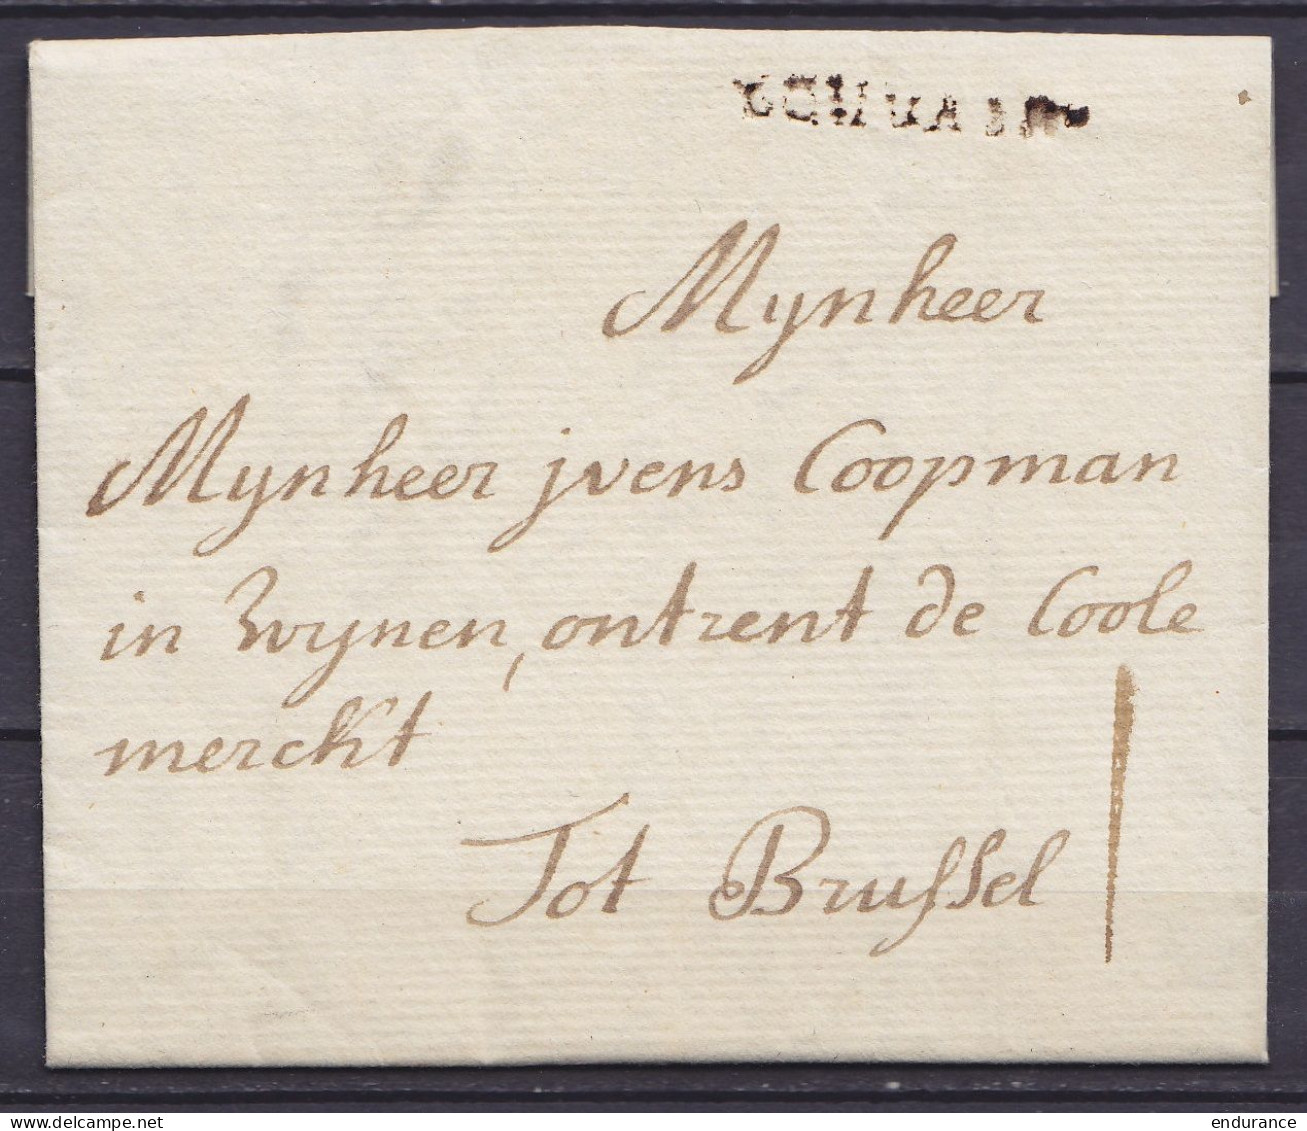 Mynheer
Mynheer jvens Coopman
in Wynen, ontrent de Coole
merckt
Tot Brussel
endurance